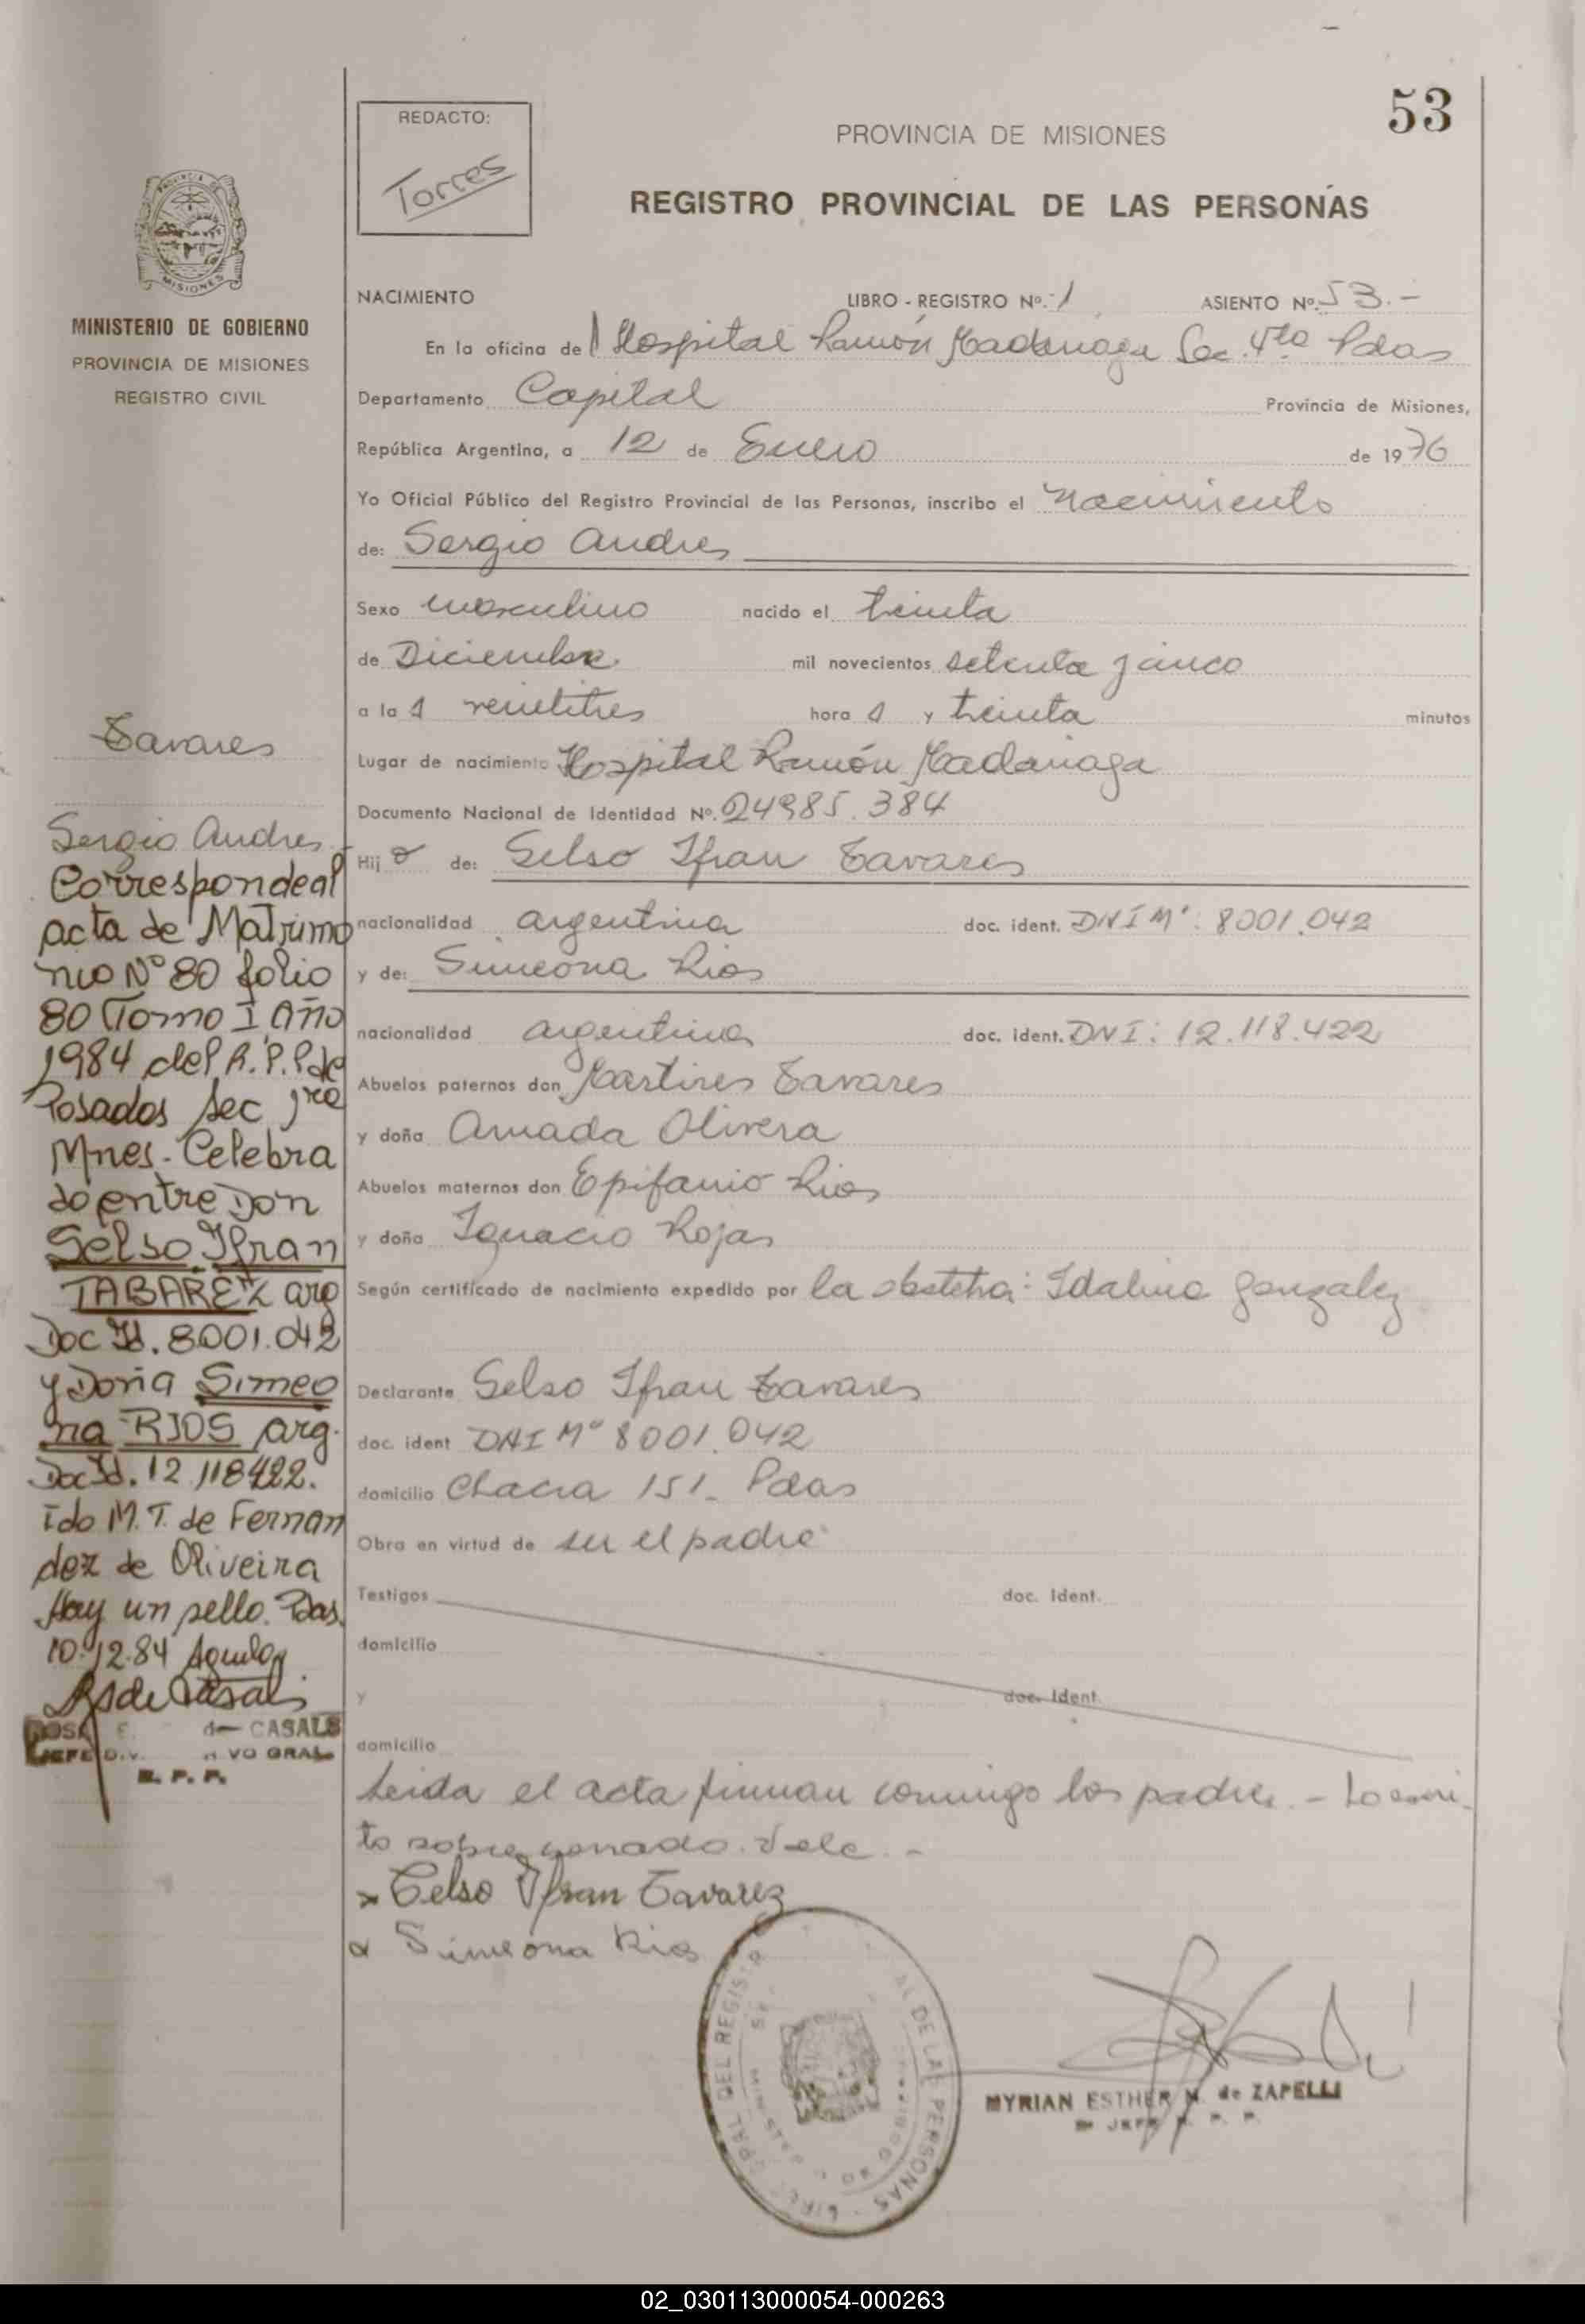 53
REDACTO:
Torres
PROVINCIA DE MISIONES
REGISTRO PROVINCIAL DE LAS PERSONAS
MINISTERIO DE GOBIERNO
PROVINCIA DE MISIONES
REGISTRO CIVIL
NACIMIENTO LIBRO - REGISTRO Nº. 1 ASIENTO Nº 53.-
En la oficina del Hospital Ramón Madariaga Sec. 4ta Pdas
Departamento Capital Provincia de Misiones,
República Argentina, a 12 de Enero de 1976
Yo Oficial Público del Registro Provincial de las Personas, inscribo el Nacimiento
de: Sergio Andres
Sexo masculino nacido el treinta
de Diciembre mil novecientos setenta y cinco
a la s veintitres hora s y treinta minutos
Lugar de nacimiento Hospital Ramón Madariaga
Documento Nacional de Identidad Nº. 24985.384
Hij o de: Selso Ifran Tavares
nacionalidad argentina doc. ident. DNI Mº: 8001.042
y de: Simeona Rios
nacionalidad argentina doc. ident. DNI: 12.118.422
Abuelos paternos don Martires Tavares
y doña Amada Olivera
Abuelos maternos don Epifanio Rios
y doña Ignacio Rojas
Según certificado de nacimiento expedido por la obstetra: Idalina Gonzalez
Declarante Selso Ifran Tavares
doc. ident DNI Mº 8001.042
domicilio Chacra 151- Pdas
Obra en virtud de ser el padre
Testigos doc. ident.
domicilio
y doc. ident.
domicilio
Leida el acta firman conmigo los padres.- Lo escri-
to sobre borrado. Vale.-
x Celso Ifran Tavarez
x Simeona Rios
MYRIAN ESTHER N. de ZAPELLI
JEFE R. P. P.
Tavares
Sergio Andres
Corresponde al
acta de Matrimo
nio Nº 80 folio
80 Tomo I Año
1984 del R.P.P. de
Posadas Sec 1ra
Mnes- Celebra
do entre Don
Selso Ifran
TABAREZ arg
Doc Id. 8001.042
y Doña Simeo
na RIOS arg.
Doc Id. 12.118422.
Fdo M.T. de Fernan
dez de Oliveira
Hay un sello. Pdas.
10-12-84
de CASALS
R. P. P.
02_030113000054-000263